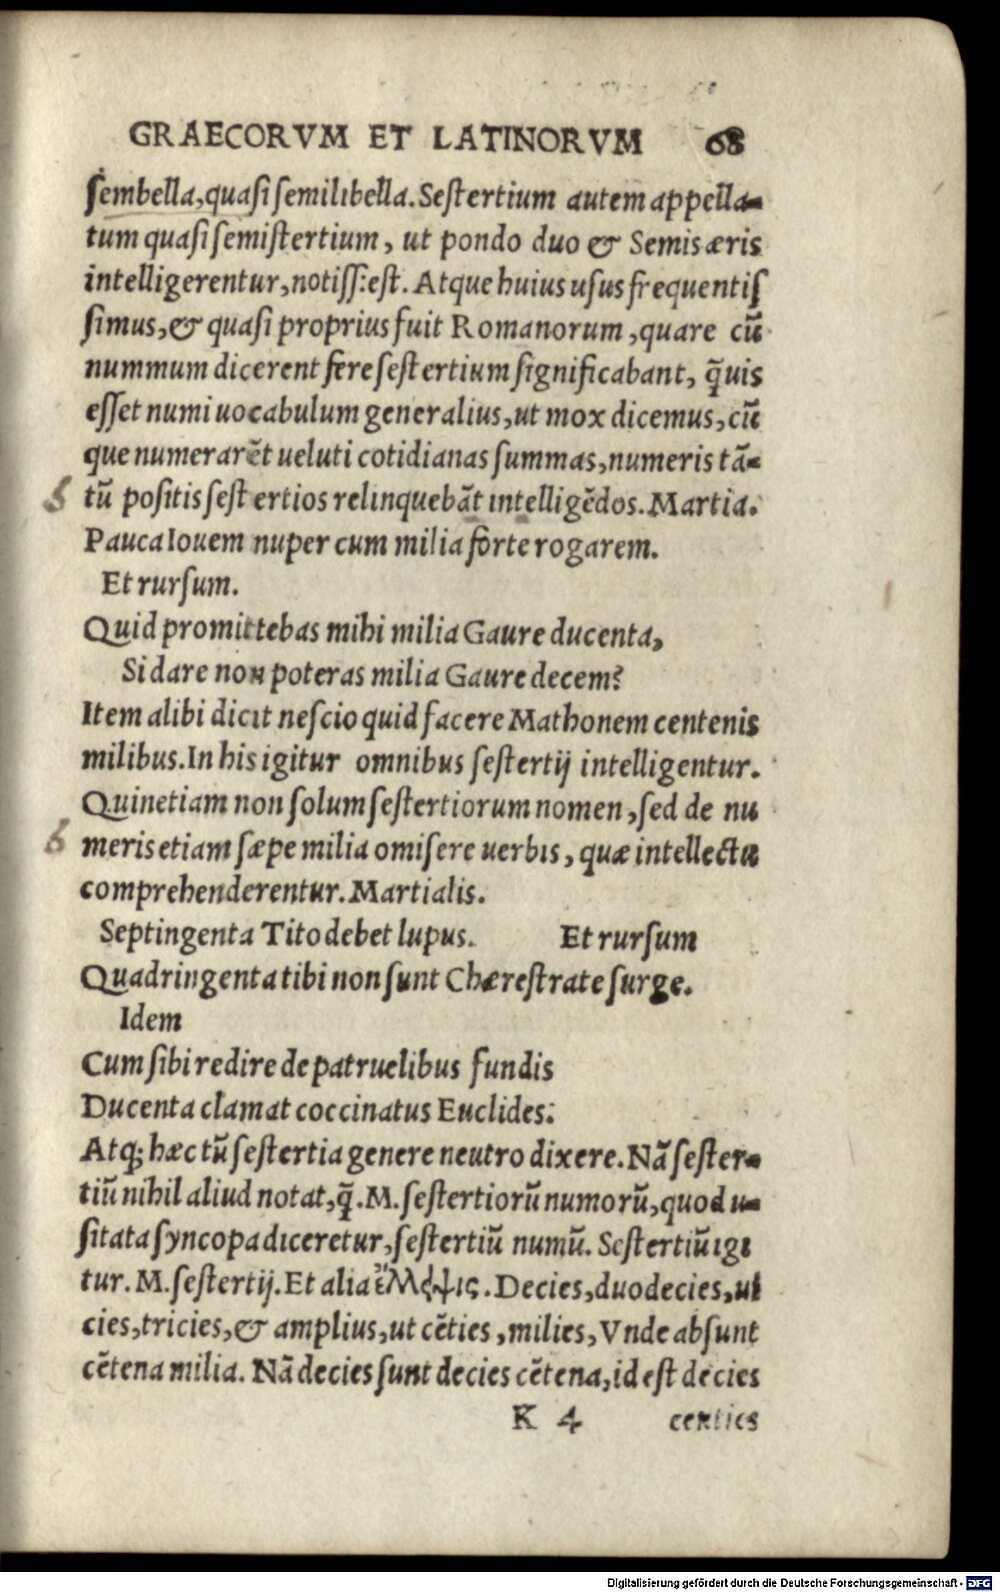 GRAECORVM ET LATINORVM 68
ſembella,quaſi ſemilibella.Seſtertium autem appella-
tum quaſi ſemiſtertium, ut pondo duo & Semis æris
intelligerentur,notiſſ:eſt. Atque huius uſus frequentiſ
ſimus,& quaſi proprius fuit Romanorum,quare cū
nummum dicerent fere ſeſtertium ſignificabant, q̄uis
eſſet numi uocabulum generalius,ut mox dicemus,cū
que numerarēt ueluti cotidianas ſummas,numeris tā-
6 tū poſitis ſeſtertios relinquebāt intelligēdos.Martia.
Pauca Iouem nuper cum milia forte rogarem.
Et rurſum.
Quid promittebas mihi milia Gaure ducenta,
Si dare non poteras milia Gaure decem?
Item alibi dicit neſcio quid facere Mathonem centenis
milibus.In his igitur omnibus ſeſtertij intelligentur.
Quinetiam non ſolum ſeſtertiorum nomen,ſed de nu
6 meris etiam ſæpe milia omiſere uerbis, quæ intellectu
comprehenderentur.Martialis.
Septingenta Tito debet lupus. Et rurſum
Quadringenta tibi non ſunt Chæreſtrate ſurge.
Idem
Cum ſibi redire de patruelibus fundis
Ducenta clamat coccinatus Euclides:
Atq; hæc tū ſeſtertia genere neutro dixere.Nā ſeſter-
tiū nihil aliud notat,q̄.M.ſeſtertiorū numorū,quod u-
ſitata ſyncopa diceretur,ſeſtertiū numū. Seſtertiū igi
tur.M.ſeſtertij.Et alia ἔλλειψις.Decies,duodecies,ui
cies,tricies,& amplius,ut cēties,milies,Vnde abſunt
cētena milia. Nā decies ſunt decies cētena,id eſt decies
K 4 centies
Digitalisierung gefördert durch die Deutsche Forschungsgemeinschaft - DFG